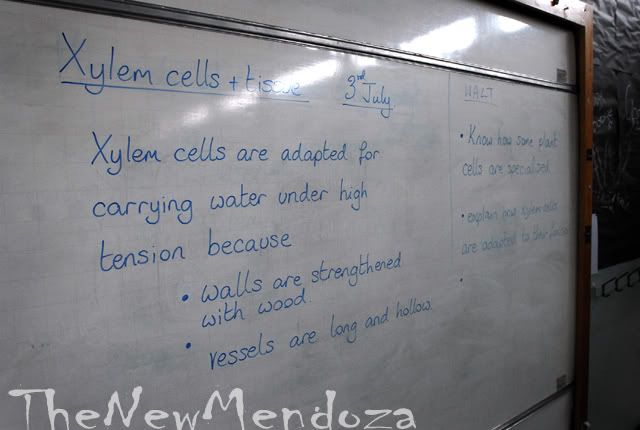 Xylem cells + tissue 3rd July
Xylem cells are adapted for
carrying water under high
tension because
• walls are strengthened
with wood.
• vessels are long and hollow.
WALT
• Know how some plant
cells are specialised
• explain how xylem cells
are adapted to their function
TheNewMendoza